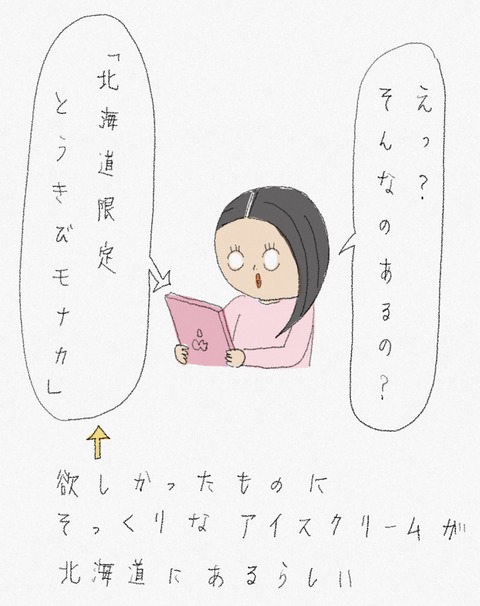 えっ？
そんなのあるの？
「北海道限定
とうきびモナカ」
欲しかったものに
そっくりなアイスクリームが
北海道にあるらしい